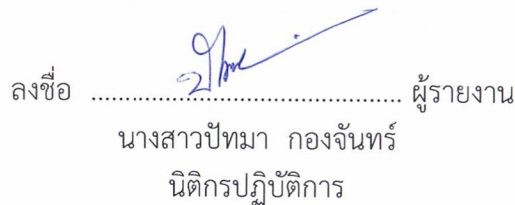 ลงชื่อ ........................................ ผู้รายงาน
นางสาวปัทมา กองจันทร์
นิติกรปฏิบัติการ